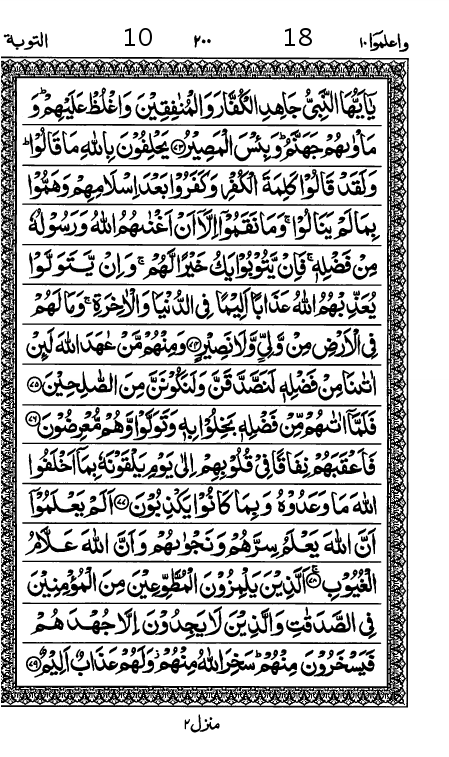 واعلموا ١٠ 18 ٢٠٠ 10 التوبة
يٰۤاَيُّهَا النَّبِىُّ جَاهِدِ الْكُفَّارَ وَالْمُنٰفِقِيْنَ وَاغْلُظْ عَلَيْهِمْ ؕ وَ
مَاْوٰٮهُمْ جَهَنَّمُ ؕ وَبِئْسَ الْمَصِيْرُ ﴿۷۳﴾ يَحْلِفُوْنَ بِاللّٰهِ مَا قَالُوْا ؕ
وَلَقَدْ قَالُوْا كَلِمَةَ الْكُفْرِ وَكَفَرُوْا بَعْدَ اِسْلَامِهِمْ وَهَمُّوْا
بِمَا لَمْ يَنَالُوْا ۚ وَمَا نَقَمُوْۤا اِلَّاۤ اَنْ اَغْنٰٮهُمُ اللّٰهُ وَرَسُوْلُهٗ
مِنْ فَضْلِهٖ ۚ فَاِنْ يَّتُوْبُوْا يَكُ خَيْرًا لَّهُمْ ۚ وَاِنْ يَّتَوَلَّوْا
يُعَذِّبْهُمُ اللّٰهُ عَذَابًا اَلِيْمًا فِى الدُّنْيَا وَالْاٰخِرَةِ ۚ وَمَا لَهُمْ
فِى الْاَرْضِ مِنْ وَّلِىٍّ وَّلَا نَصِيْرٍ ﴿۷۴﴾ وَمِنْهُمْ مَّنْ عٰهَدَ اللّٰهَ لَٮِٕنْ
اٰتٰٮنَا مِنْ فَضْلِهٖ لَنَصَّدَّقَنَّ وَلَنَكُوْنَنَّ مِنَ الصّٰلِحِيْنَ ﴿۷۵﴾
فَلَمَّاۤ اٰتٰٮهُمْ مِّنْ فَضْلِهٖ بَخِلُوْا بِهٖ وَتَوَلَّوْا وَّهُمْ مُّعْرِضُوْنَ ﴿۷۶﴾
فَاَعْقَبَهُمْ نِفَاقًا فِىْ قُلُوْبِهِمْ اِلٰى يَوْمِ يَلْقَوْنَهٗ بِمَاۤ اَخْلَفُوا
اللّٰهَ مَا وَعَدُوْهُ وَبِمَا كَانُوْا يَكْذِبُوْنَ ﴿۷۷﴾ اَلَمْ يَعْلَمُوْۤا
اَنَّ اللّٰهَ يَعْلَمُ سِرَّهُمْ وَنَجْوٰٮهُمْ وَاَنَّ اللّٰهَ عَلَّامُ
الْغُيُوْبِ ۚ ﴿۷۸﴾ اَلَّذِيْنَ يَلْمِزُوْنَ الْمُطَّوِّعِيْنَ مِنَ الْمُؤْمِنِيْنَ
فِى الصَّدَقٰتِ وَالَّذِيْنَ لَا يَجِدُوْنَ اِلَّا جُهْدَهُمْ
فَيَسْخَرُوْنَ مِنْهُمْ ؕ سَخِرَ اللّٰهُ مِنْهُمْ ؗ وَلَهُمْ عَذَابٌ اَلِيْمٌ ﴿۷۹﴾
منزل ٢